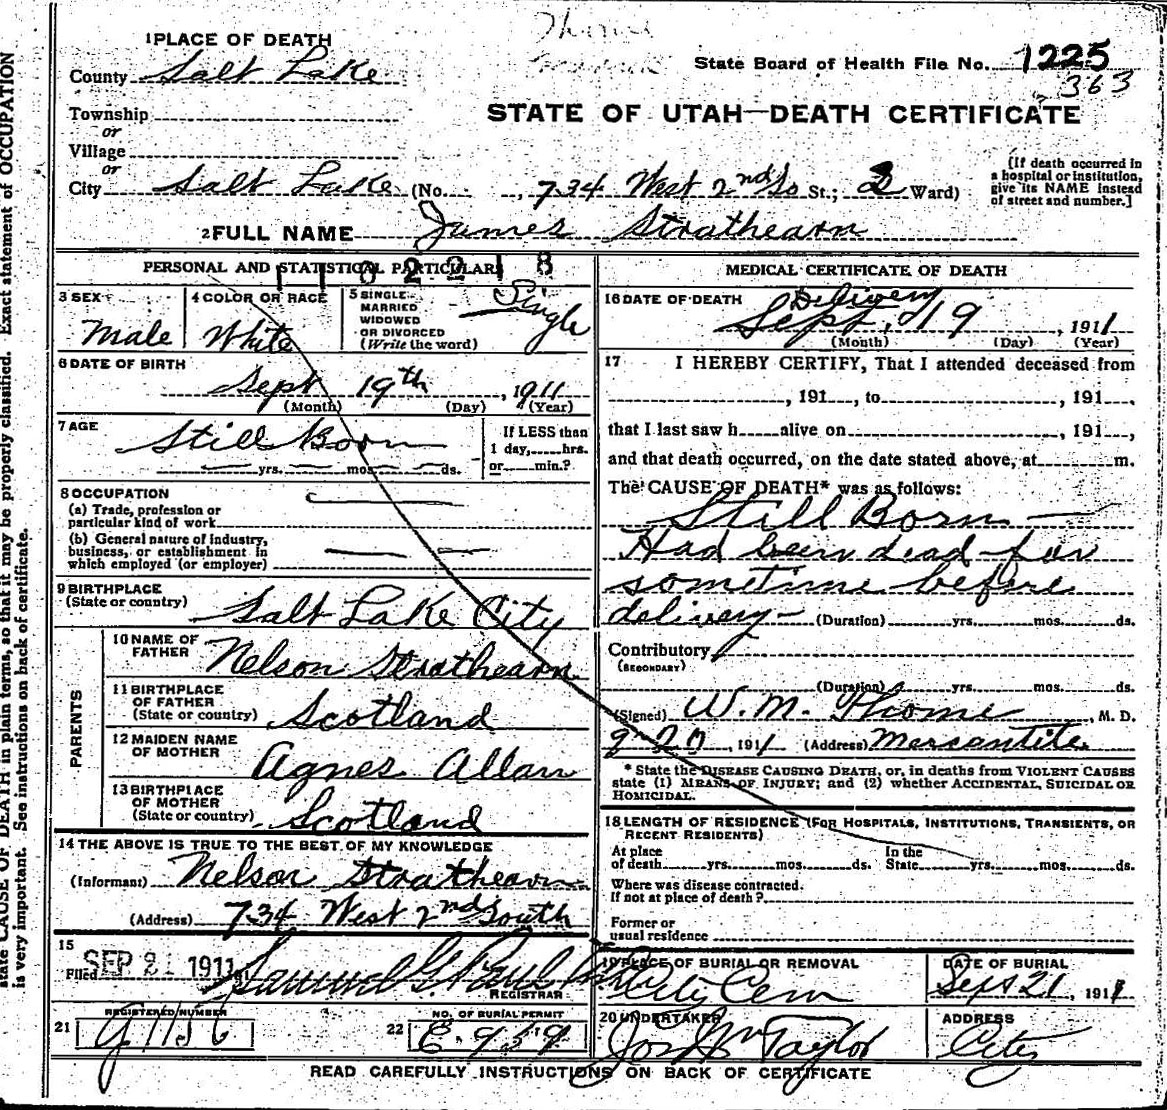 1 PLACE OF DEATH
County Salt Lake
State Board of Health File No. 1225
363
Township
or
Village
or
STATE OF UTAH—DEATH CERTIFICATE
City Salt Lake (No. 734 West 2nd So St.; 2 Ward)
[If death occurred in
a hospital or institution,
give its NAME instead
of street and number.]
2 FULL NAME James Strathearn
PERSONAL AND STATISTICAL PARTICULARS
3 SEX
Male
4 COLOR OR RACE
White
5 SINGLE
MARRIED
WIDOWED
OR DIVORCED
(Write the word)
Single
6 DATE OF BIRTH
Sept 19th, 1911
(Month) (Day) (Year)
7 AGE
Still Born
yrs. mos. ds.
If LESS than
1 day, hrs.
or min.?
8 OCCUPATION
(a) Trade, profession or
particular kind of work
(b) General nature of industry,
business, or establishment in
which employed (or employer)
9 BIRTHPLACE
(State or country)
Salt Lake City
PARENTS
10 NAME OF
FATHER
Nelson Strathearn
11 BIRTHPLACE
OF FATHER
(State or country)
Scotland
12 MAIDEN NAME
OF MOTHER
Agnes Allan
13 BIRTHPLACE
OF MOTHER
(State or country)
Scotland
14 THE ABOVE IS TRUE TO THE BEST OF MY KNOWLEDGE
(Informant) Nelson Strathearn
(Address) 734 West 2nd South
15
Filed SEP 21 1911
REGISTRAR
REGISTERED NUMBER
21
NO. OF BURIAL PERMIT
22
MEDICAL CERTIFICATE OF DEATH
16 DATE OF DEATH
Delivery
Sept. 19, 1911
(Month) (Day) (Year)
17 I HEREBY CERTIFY, That I attended deceased from
, 191 , to , 191 ,
that I last saw h alive on , 191 ,
and that death occurred, on the date stated above, at m.
The CAUSE OF DEATH* was as follows:
Still Born
Had been dead for
sometime before
delivery (Duration) yrs. mos. ds.
Contributory
(SECONDARY)
(Duration) yrs. mos. ds.
(Signed) W. M. Thome, M. D.
9-20, 1911 (Address) Mercantile
* State the DISEASE CAUSING DEATH, or, in deaths from VIOLENT CAUSES
state (1) MEANS OF INJURY; and (2) whether ACCIDENTAL, SUICIDAL OR
HOMICIDAL.
18 LENGTH OF RESIDENCE (FOR HOSPITALS, INSTITUTIONS, TRANSIENTS, OR
RECENT RESIDENTS)
At place
of death yrs. mos. ds.
In the
State yrs. mos. ds.
Where was disease contracted.
If not at place of death?
Former or
usual residence
19 PLACE OF BURIAL OR REMOVAL
City Cem
DATE OF BURIAL
Sept 21, 1911
20 UNDERTAKER
Jos Wm Taylor
ADDRESS
City
READ CAREFULLY INSTRUCTIONS ON BACK OF CERTIFICATE
state CAUSE OF DEATH in plain terms, so that it may be properly classified. Exact statement of OCCUPATION
is very important. See instructions on back of certificate.